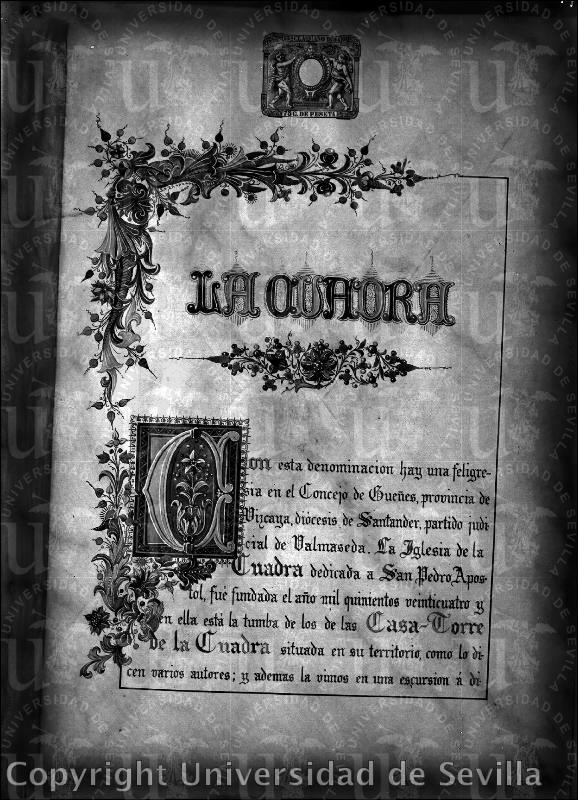 75 C. DE PESETA
LA CUADRA
Con esta denominacion hay una feligre-
sia en el Concejo de Gueñes, provincia de
Vizcaya, diócesis de Santander, partido judi
cial de Valmaseda. La Iglesia de la
Cuadra dedicada a San Pedro Apos-
tol, fué fundada el año mil quinientos veinticuatro y
en ella está la tumba de los de las Casa-Torre
de la Cuadra situada en su territorio, como lo di
cen varios autores; y ademas la vimos en una escursion á di
Copyright Universidad de Sevilla